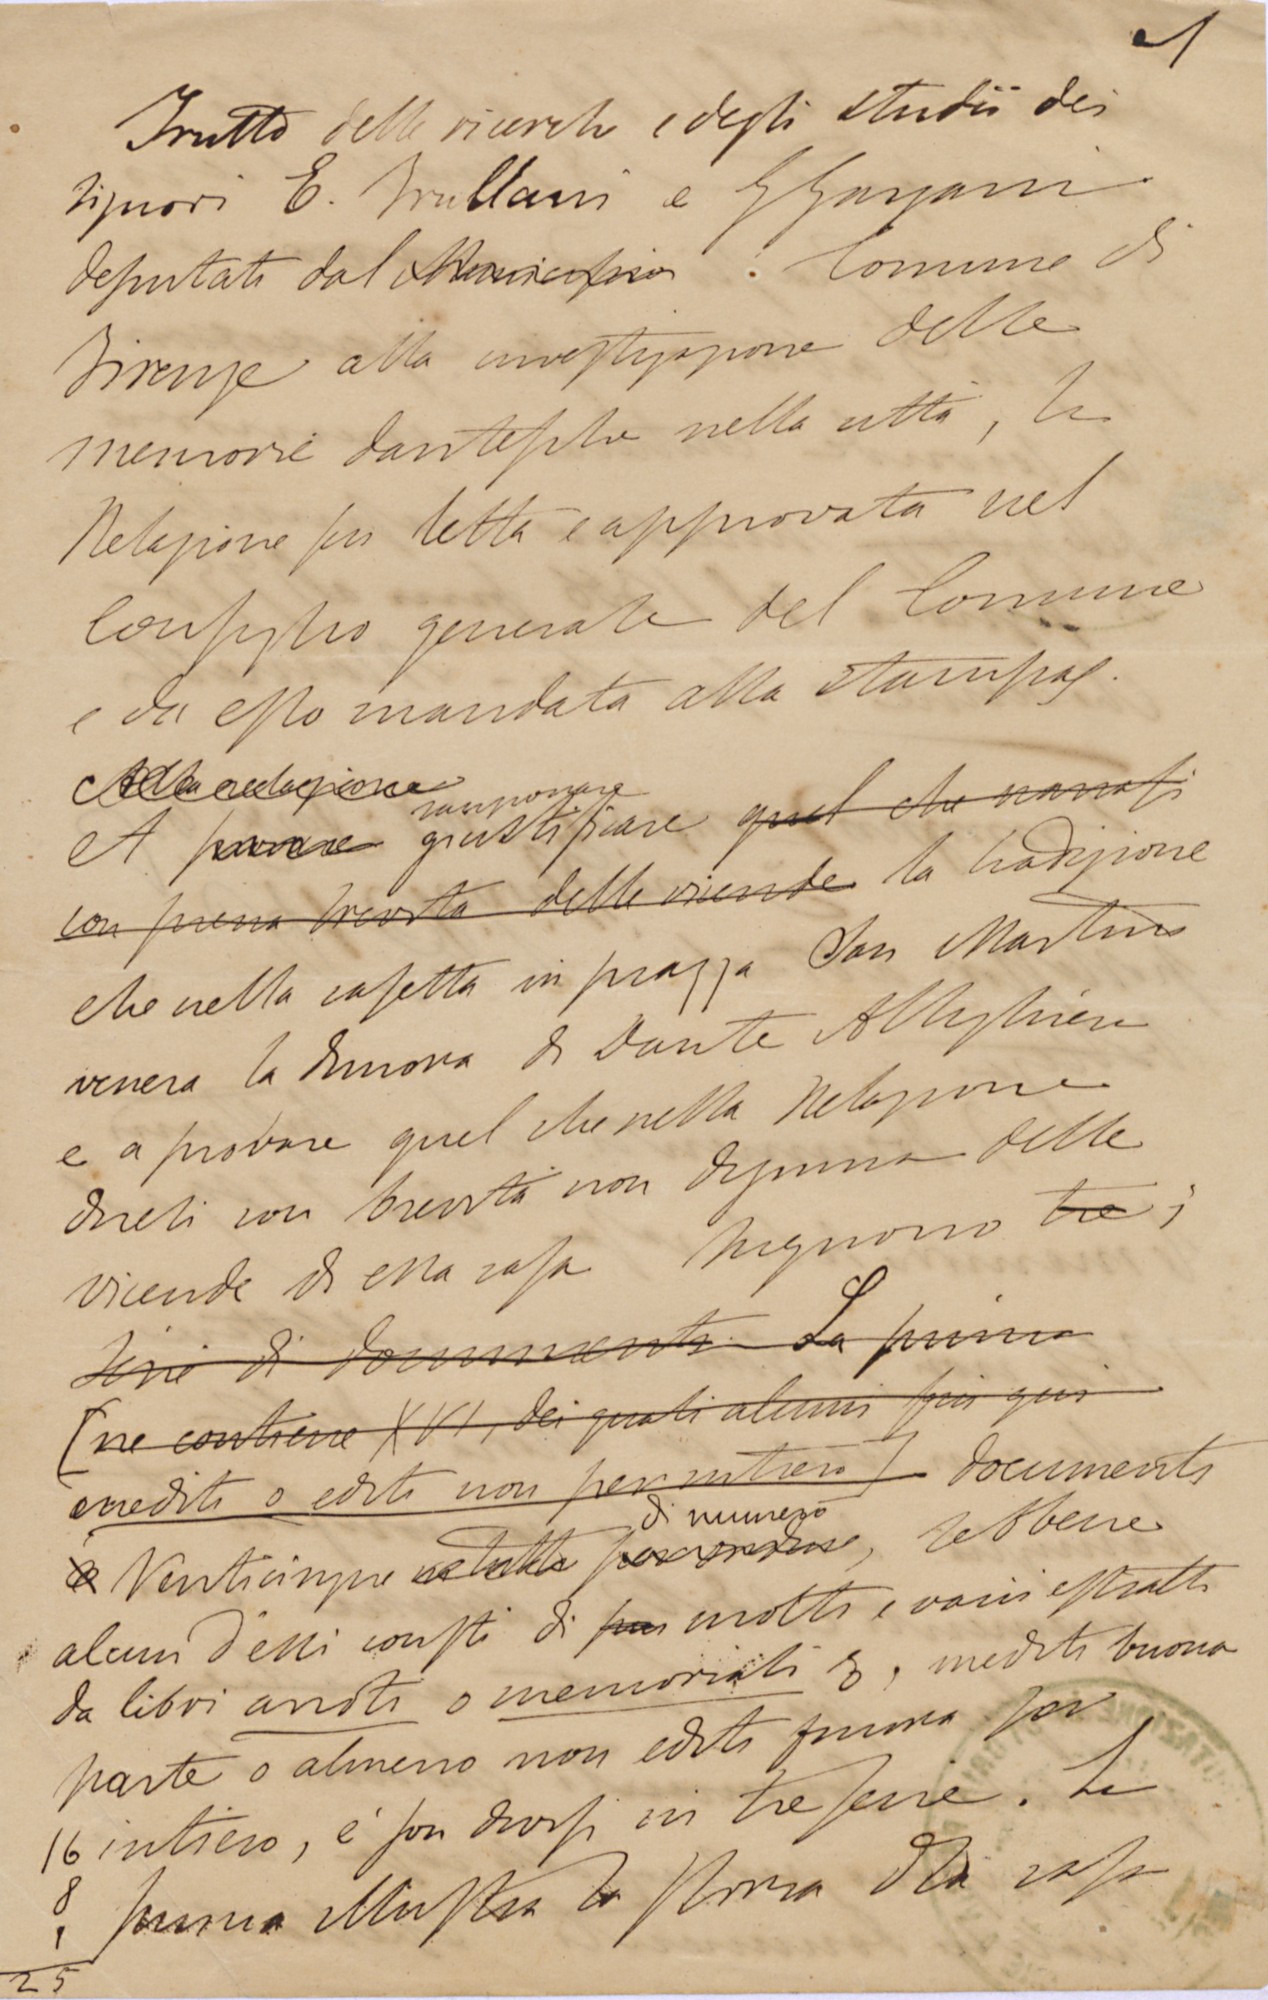 1
Frutto delle ricerche e degli studii dei
signori E. Frullani e G Gargani
deputati dal Municipio Comune di
Firenze alla investigazione delle
memorie dantesche nella città, la
Relazione fu letta e approvata nel
Consiglio generale del Comune
e da esso mandata alla stampa.
Alla relazione
ragionare
A provare giustificare quel che narrasi
con piena brevità delle vicende la tradizione
che nella casetta in piazza San Martino
venera la dimora di Dante Allighieri
e a provare quel che nella Relazione
dicesi con brevità non digiuna delle
vicende di essa casa seguono tre i
serie di documenti. La prima
[ne contiene XVI, dei quali alcuni fin qui
inediti o editi non per intiero] documenti
e Venticinque in tutto di numero, sebbene
alcun d'essi consti di più molti e varii estratti
da libri anoti o memoriali &, inediti buona
parte o almeno non editi finora per
16 intiero, e son divisi in tre serie. La
8 prima illustra la storia della casa
1
25